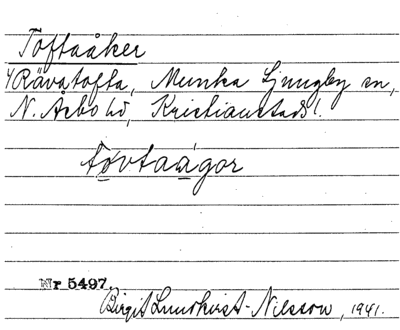 Toftaåker
Rävatofta, Munka Ljungby sn,
N. Åsbo hd, Kristianstads l.
tovtaågor
Nr 5497.
Birgit Lundkvist-Nilsson, 1941.